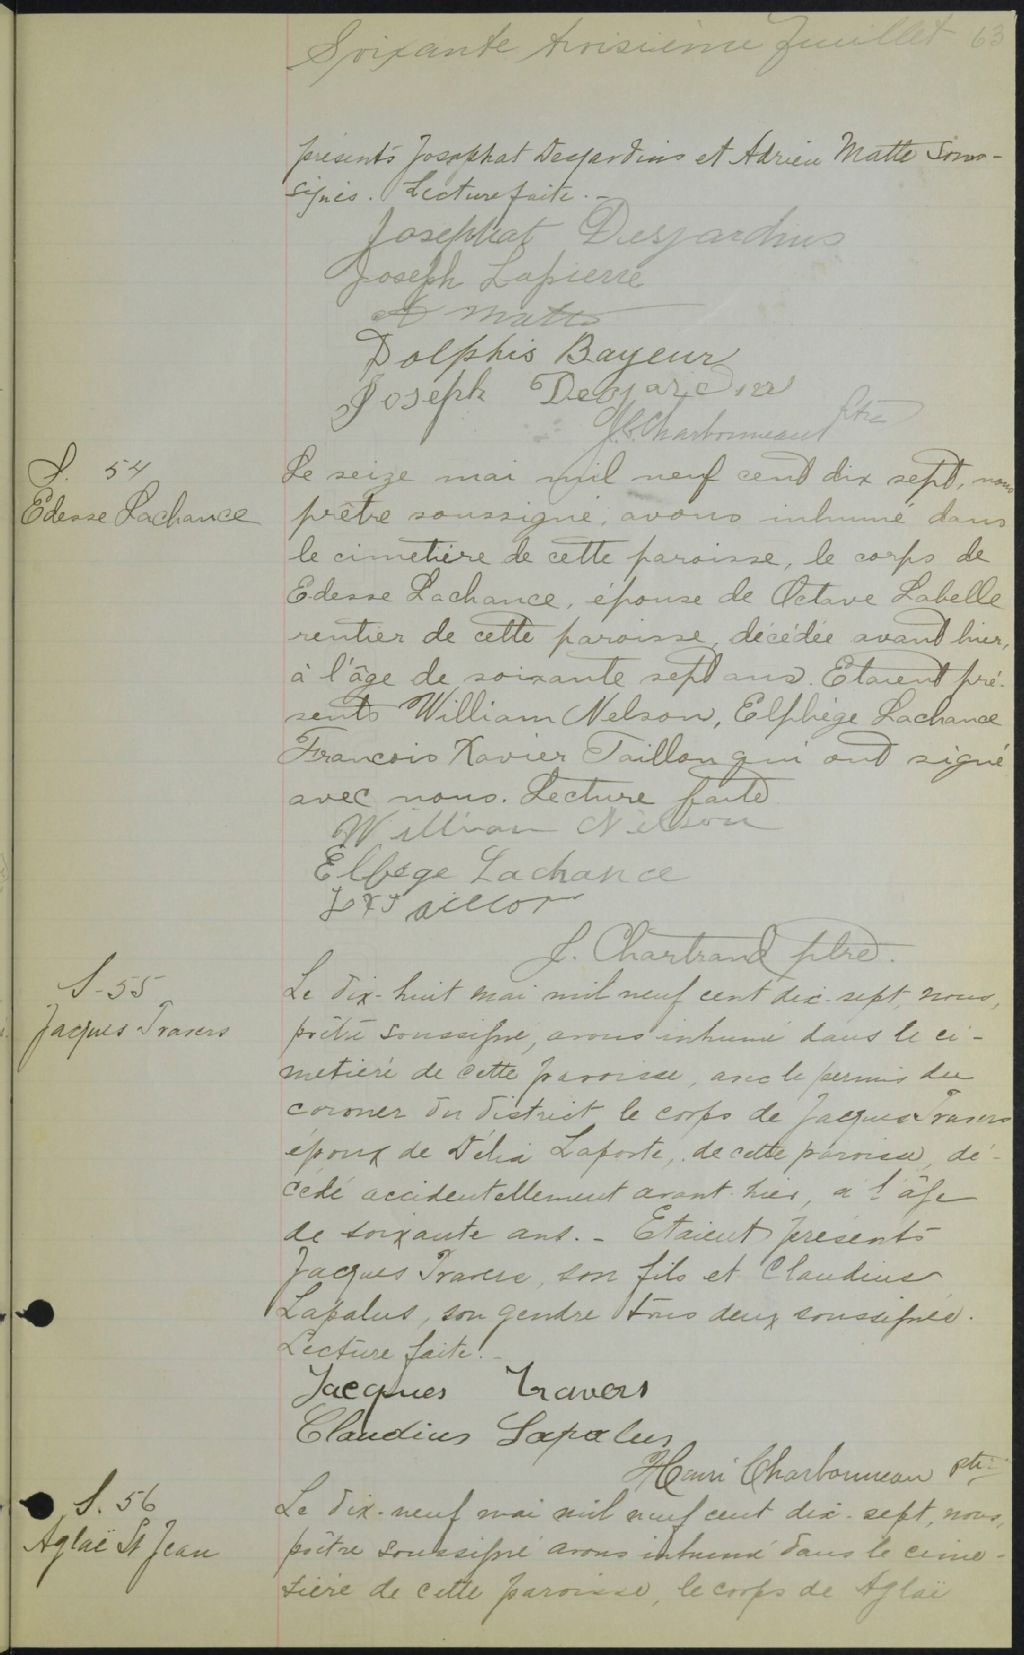 Soixante troisième feuillet 63
présents Josaphat Desjardins et Adrien Matte sous-
signés. Lecture faite. -
Josephat Desjardins
Joseph Lapierre
A Matte
Dolphis Bayeur
Joseph Desjardins
Charbonneau ptre
S. 54
Edesse Lachance
Le seize mai mil neuf cent dix sept, nous
prêtre soussigné, avons inhumé dans
le cimetière de cette paroisse, le corps de
Edesse Lachance, épouse de Octave Labelle
rentier de cette paroisse, décédée avant hier,
à l'âge de soixante sept ans. Etaient pré-
sents William Nelson, Elphège Lachance
Francois Xavier Taillon qui ont signé
avec nous. Lecture faite
William Nelson
Elfége Lachance
F X Taillon
J. Chartrand ptre.
S-55
Jacques Travers
Le dix-huit mai mil neuf cent dix-sept, nous,
prêtre soussigné, avons inhumé dans le ci-
metière de cette paroisse, avec le permis du
coroner du district le corps de Jacques Travers
époux de Délia Laporte, de cette paroisse, dé-
cédé accidentellement avant-hier, à l'âge
de soixante ans. - Etaient présents
Jacques Travers, son fils et Claudius
Lapalus, son gendre tous deux soussignés.
Lecture faite. -
Jacques Travers
Claudius Lapalus
Henri Charbonneau ptre
S. 56
Aglaë St Jean
Le dix-neuf mai mil neuf cent dix-sept, nous,
prêtre soussigné avons inhumé dans le cime-
tière de cette paroisse, le corps de Aglaë